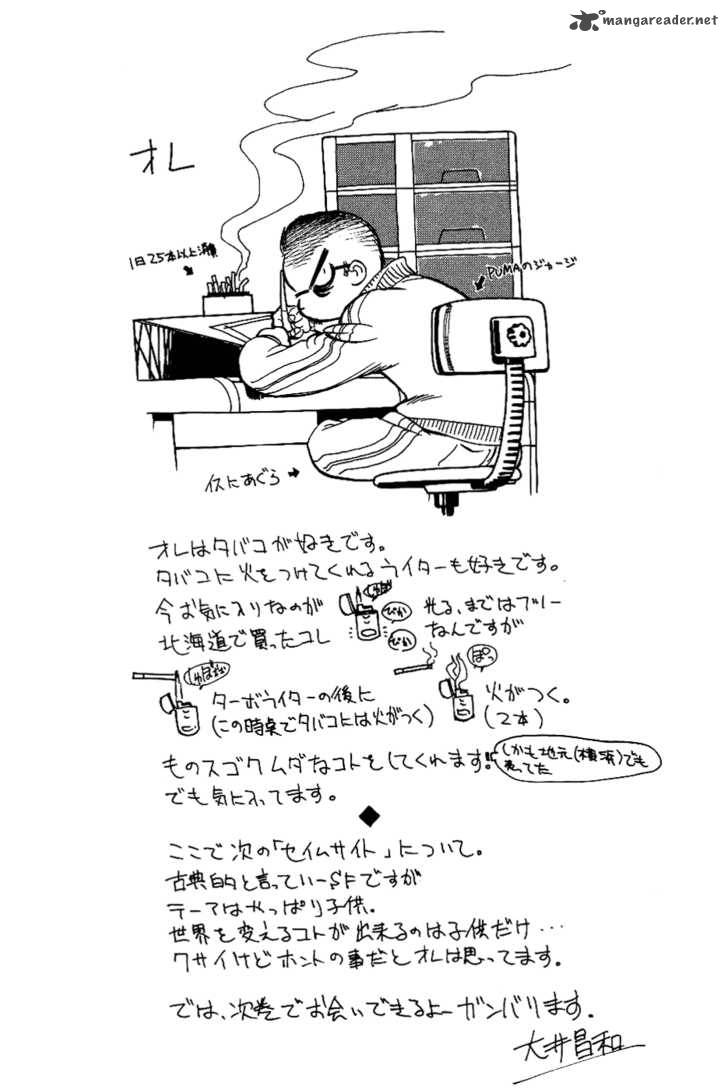 mangareader.net
オレ
1日25本以上消費
PUMAのジャージ
イスにあぐら
オレはタバコが好きです。
タバコに火をつけてくれるライターも好きです。
今お気に入りなのが
北海道で買ったコレ
しゅぼ
ぴか
ぴか
光る、まではフツー
なんですが
しゅぼぉぉ
ターボライターの後に
(この時点でタバコには火がつく)
ぽっ
火がつく。
(2本)
ものスゴクムダなコトをしてくれます。
しかも地元(横浜)でも
売ってた
でも気に入ってます。
ここで次の「セイムサイト」について。
古典的と言っていーSFですが
テーマはやっぱり子供。
世界を変えるコトが出来るのは子供だけ…
クサイけどホントの事だとオレは思ってます。
では、次巻でお会いできるよーガンバリます。
大井昌和